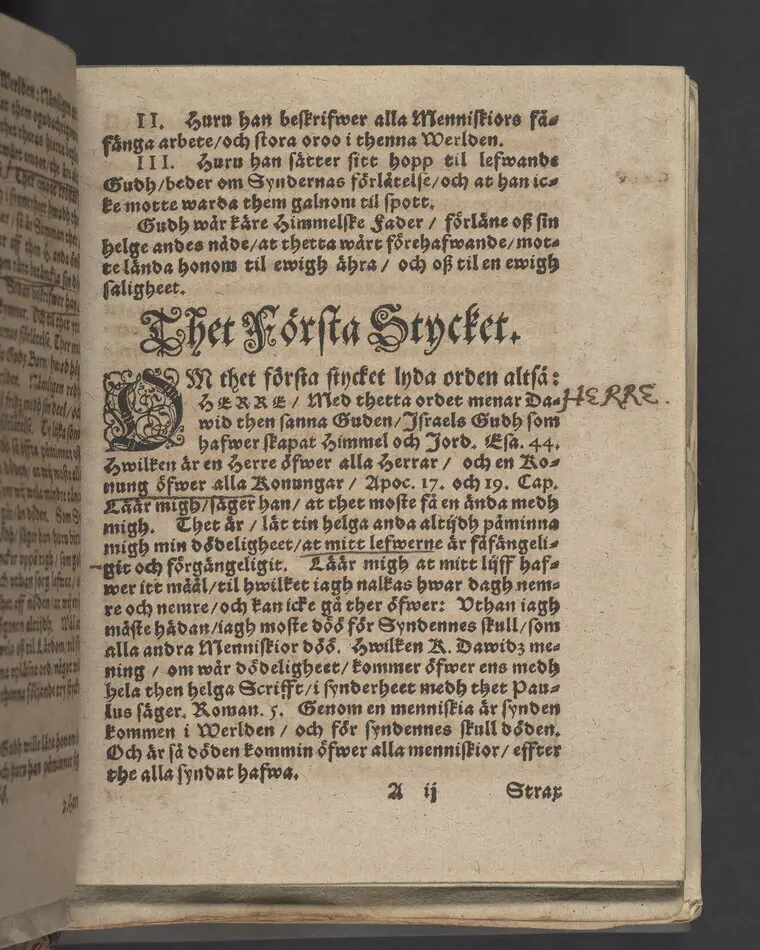 II. Huru han beskrifwer alla Menniskiors få-
fänga arbete/och stora oroo i thenna Werlden.
III. Huru han sätter sitt hopp til lefwande
Gudh/beder om Syndernas förlåtelse/och at han ic-
ke motte warda them galnom til spott.
Gudh wår käre Himmelske Fader / förläne oß sin
helge andes nåde/at thetta wårt förehafwande/mot-
te lända honom til ewigh ähra / och oß til en ewigh
saligheet.
Thet Första Stycket.
OM thet första stycket lyda orden altså:
HERRE / Med thetta ordet menar Da-
wid then sanna Guden/Israels Gudh som
hafwer skapat Himmel och Jord. Esa. 44.
Hwilken är en Herre öfwer alla Herrar / och en Ko-
nung öfwer alla Konungar / Apoc. 17. och 19. Cap.
Läär migh/säger han/ at thet moste få en ända medh
migh. Thet är / lät tin helga anda altijdh påminna
migh min dödeligheet/at mitt lefwerne är fåfängeli-
git och förgängeligit. Läär migh at mitt lijff haf-
wer itt määl/til hwilket iagh nalkas hwar dagh nem-
re och nemre/och kan icke gå ther öfwer: Vthan iagh
måste hädan/iagh moste döö för Syndennes skull/som
alla andra Menniskior döö. Hwilken K. Dawidz me-
ning / om wår dödeligheet/ kommer öfwer ens medh
hela then helga Scrifft/i synderheet medh thet Pau-
lus säger. Roman. 5. Genom en menniskia är synden
kommen i Werlden / och för syndennes skull döden.
Och är så döden kommin öfwer alla menniskior/ effter
the alla syndat hafwa.
A ij Strax
HERRE.